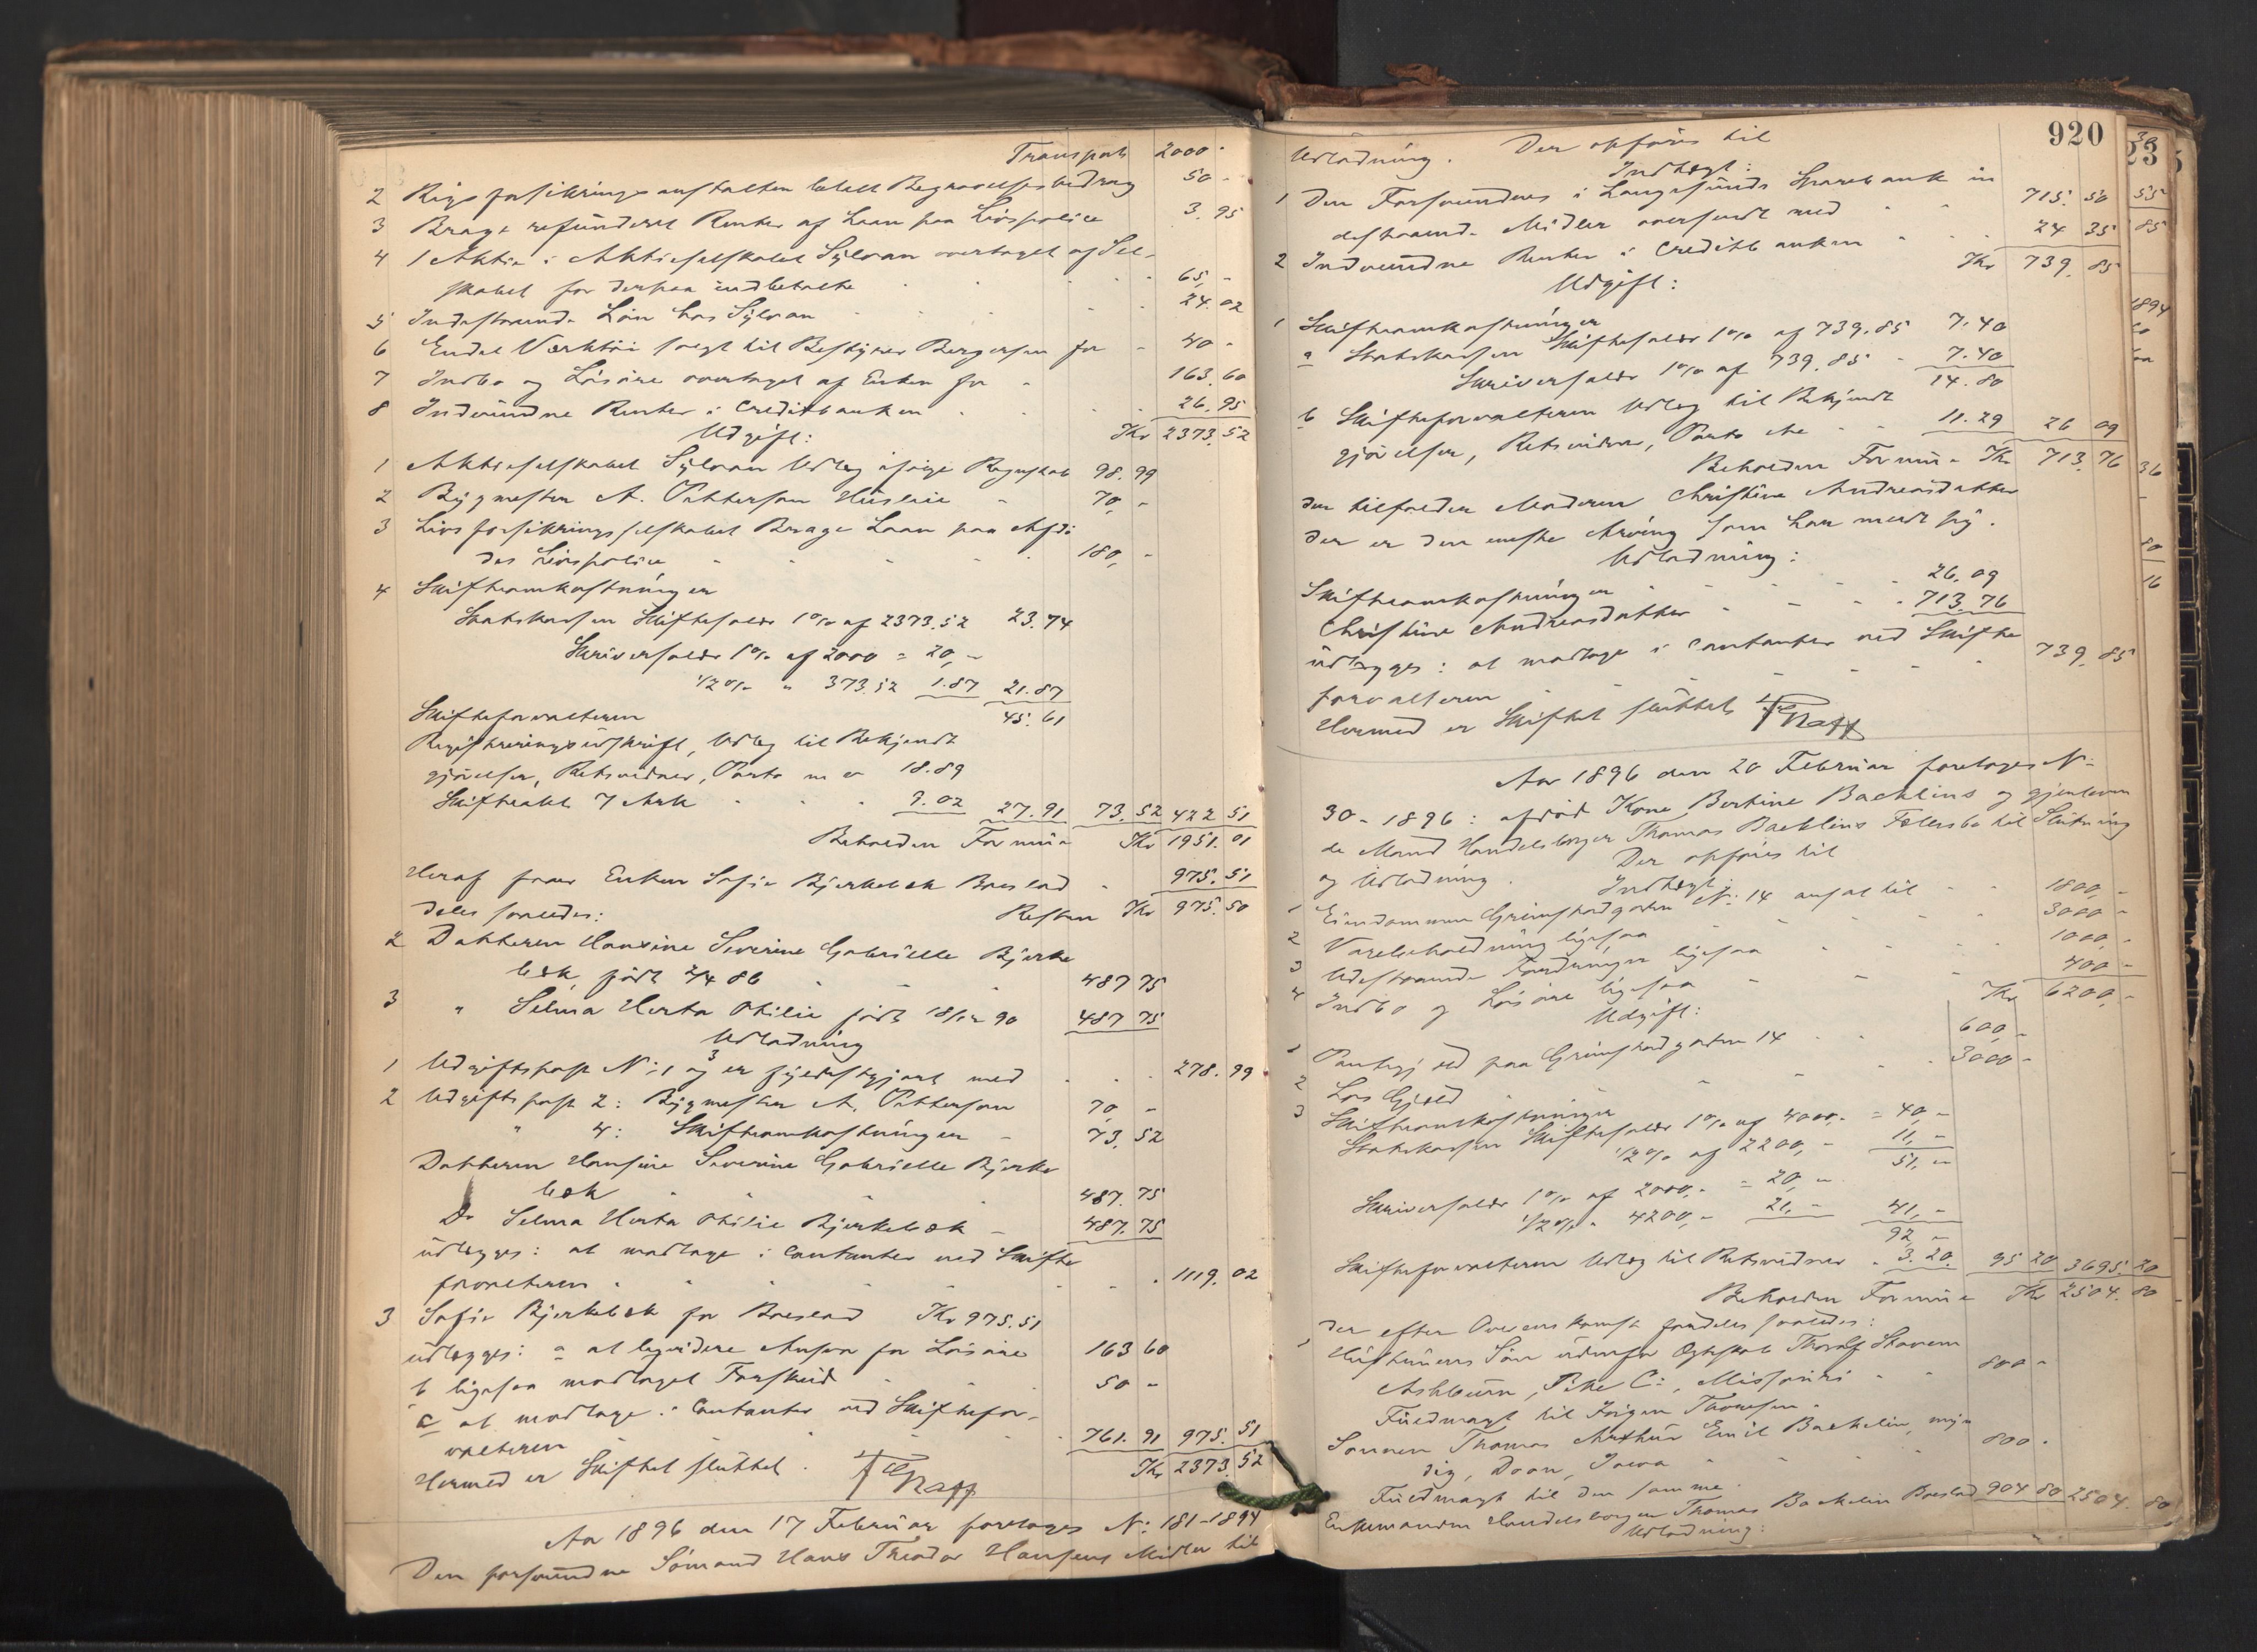 Transport 2000 -
2 Rigsforsikringsanstalten betalt Begravelsesbidrag 50 -
3 Brage refunderet Renter af Laan paa Livspolice 3.95
4 1 Aktie i Aktieselskabet Sylvan overtaget af Sel-
skabet for derpaa indbetalte 65, -
5 Indestaaende Løn hos Sylvan 24.02
6 Endel Værktøi solgt til Bestyrer Bergersen for - 40 -
7 Indbo og Løsøre overtaget af Enken for - 163.60
8 Indvundne Renter i Creditbanken 26.95
Udgift: Kr 2373.52
1 Aktieselskabet Sylvan Udlæg ifølge Regnskab 98.99
2 Bygmester A. Pettersen Husleie - 70, -
3 Livsforsikringsselskabet Brage Laan paa Afdø
des Livspolice 180, -
4 Skifteomkostninger
Statskassen Skiftesalær 1% af 2373.52 23.74
Skriversalær 1% af 2000 = 20, -
1/2% " 373.52 1.87 21.87
Skifteforvalteren 45.61
Registreringsudskrift, Udlæg til Bekjendt
gjørelser, Retsvidner, Porto m v 18.89
Skifteakt 7 Ark 9.02 27.91 73.52 422.51
Beholden Formue Kr 1951.01
Heraf faaer Enken Sofie Bjerkebæk Boeslod - 975.51
deles saaledes: Resten Kr 975.50
2 Datteren Hansine Severine Gabrielle Bjerke
bæk, født 2/4 86 487 75
3 " Selma Herta Otilie født 18/12 90 487 75
Udlodning
1 Udgiftspost No 1 og 3 er fyldestgjort med 278.99
2 Udgiftspost 2: Bygmester A. Pettersen 70, -
" 4: Skifteomkostninger - 73.52
Datteren Hansine Severine Gabrielle Bjerke
bæk 487.75
Do Selma Herta Otilie Bjerkebæk - 487.75
udlægges: at modtage i Contanter ved Skifte
forvalteren 1119.02
3 Sofie Bjerkebæk for Boeslod Kr 975.51
udlægges: a at liqvidere Ansvar for Løsøre 163 60
b ligesaa modtaget Forskud 50 -
c at modtage i Contanter ved Skiftefor-
valteren 761.91 975.51
Hermed er Skiftet sluttet. Kr 2373.52
Aar 1896 den 17 Februar foretages No 181-1894
Den forsvundne Sømand Hans Theodor Hansens Midler til
920
Udlodning. Der opføres til
Indtægt:
1 Den Forsvundnes i Langesunds Sparebank in
destaaende Midler oversendt med 715.50
2 Indvundne Renter i Creditbanken 24 35
Udgift: Kr 739.85
1 Skifteomkostninger
a Statskassen Skiftesalær 1% af 739.85 7.40
Skriversalær 1% af 739.85 - 7.40
14.80
b Skifteforvalteren Udlæg til Bekjendt
gjørelser, Retsvidner, Porto etc - 11.29 26 09
Beholden Formue Kr 713.76
der tilfalder Moderen Christine Andreasdatter
der er den eneste Arving som har meldt sig.
Udlodning:
Skifteomkostninger 26.09
Christine Andreasdatter 713.76
udlægges: at modtage i Contanter ved Skifte
forvalteren 739.85
Hermed er Skiftet sluttet
Aar 1896 den 20 Februar foretages No
30-1896: afdød Kone Bertine Baeklins og gjenleven
de Mand Handelsborger Thomas Baeklins Fællesbo til Slutning
og Udlodning. Der opføres til
Indtægt:
1 Eiendommen Grimstadgaden No 14 ansat til 1800, -
2 Varebeholdning ligesaa 3000 -
3 Udestaaende Fordringer ligesaa 1000, -
4 Indbo og Løsøre ligesaa 400, -
Udgift: Kr 6200, -
1 Pantegjæld paa Grimstadgaden 14 600, -
2 Løs Gjæld 3000 -
3 Skifteomkostninger
Statskassen Skiftesalær 1% af 4000, - = 40, -
1/2% af 2200, - 11, -
51, -
Skriversalær 1% af 2000, - = 20, -
1/2% " 4200, - 21, - 41, -
92, -
Skifteforvalteren Udlæg til Retsvidner - 3.20 95 20 3695.20
Beholden Formue Kr 2504.80
der efter Overenskomst fordeles saaledes:
1 Husfruens Søn udenfor Ægteskab Thorolf
Ashburn, Pike Co, Missouri 800 -
Fuldmagt til Jørgen Thomsen.
Sønnen Thomas Arthur Emil Baeklin, myn
dig, Doon, Iowa 800 -
Fuldmagt til den samme.
Enkemanden Handelsborger Thomas Baeklin Boeslod 904 80 2504.80
Udlodning: